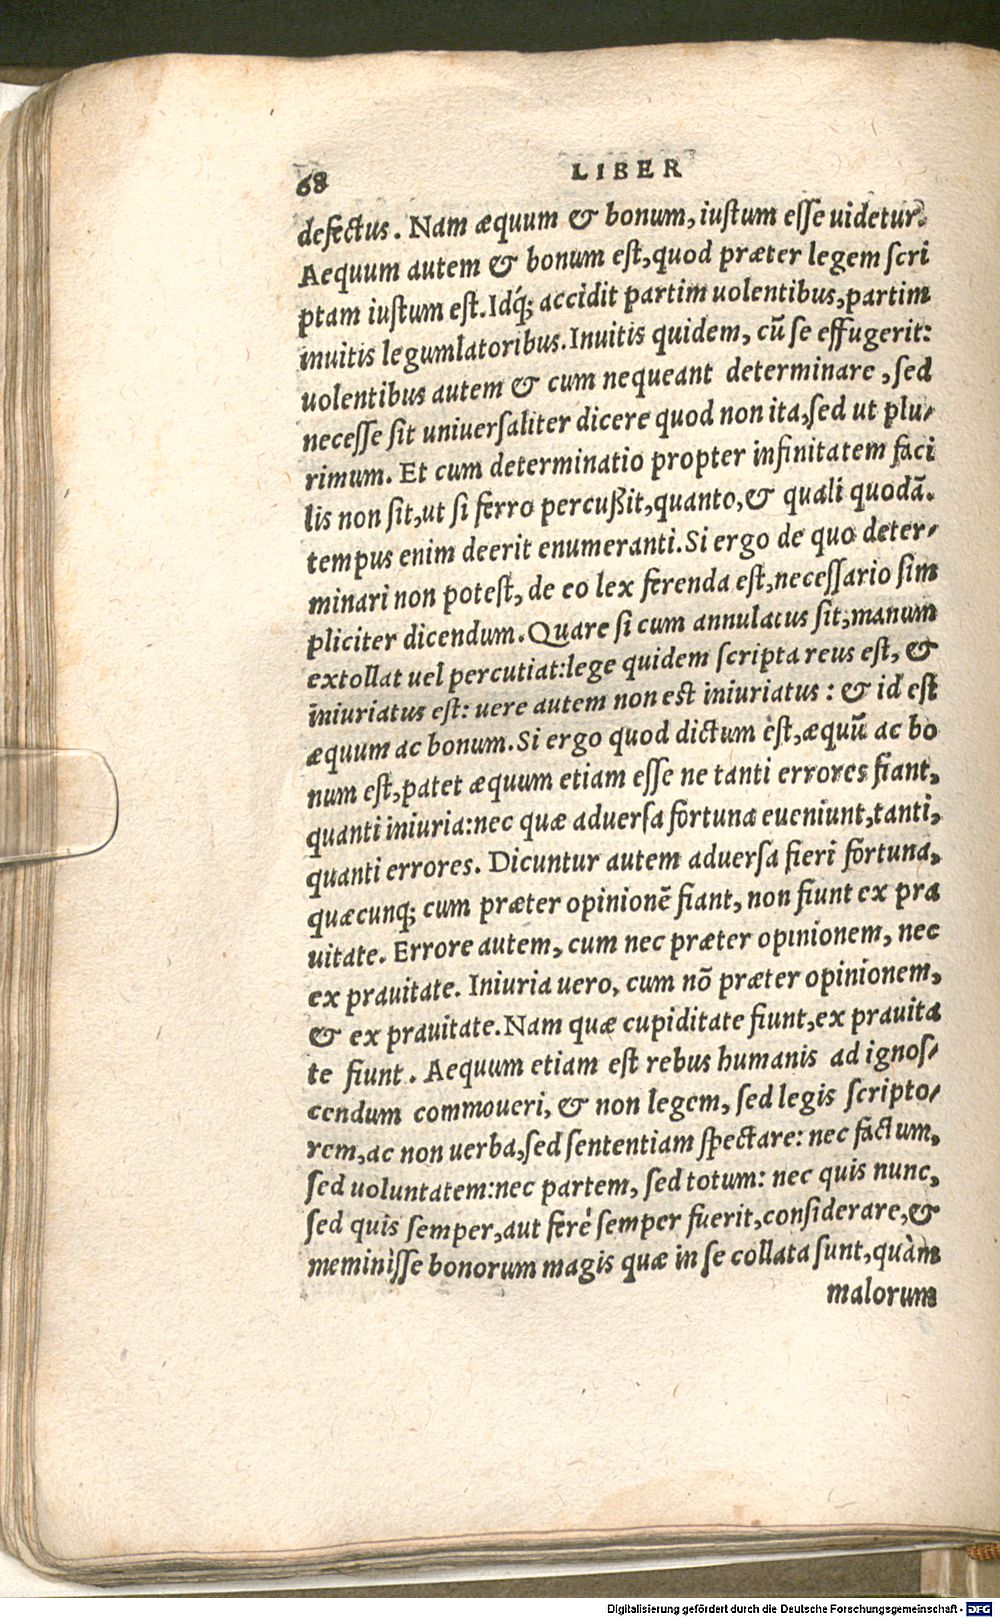 68 LIBER
defectus. Nam æquum & bonum, iustum esse uidetur.
Aequum autem & bonum est, quod præter legem scri
ptam iustum est. Idq́; accidit partim uolentibus, partim
inuitis legumlatoribus. Inuitis quidem, cū se effugerit:
uolentibus autem & cum nequeant determinare, sed
necesse sit uniuersaliter dicere quod non ita, sed ut plu-
rimum. Et cum determinatio propter infinitatem faci
lis non sit, ut si ferro percußit, quanto, & quali quodā.
tempus enim deerit enumeranti. Si ergo de quo deter-
minari non potest, de eo lex ferenda est, necessario sim
pliciter dicendum. Quare si cum annulatus sit, manum
extollat uel percutiat: lege quidem scripta reus est, &
iniuriatus est: uere autem non est iniuriatus: & id est
æquum ac bonum. Si ergo quod dictum est, æquū ac bo
num est, patet æquum etiam esse ne tanti errores fiant,
quanti iniuria: nec quæ aduersa fortuna eueniunt, tanti,
quanti errores. Dicuntur autem aduersa fieri fortuna,
quæcunq; cum præter opinionē fiant, non fiunt ex pra
uitate. Errore autem, cum nec præter opinionem, nec
ex prauitate. Iniuria uero, cum nō præter opinionem,
& ex prauitate. Nam quæ cupiditate fiunt, ex prauita
te fiunt. Aequum etiam est rebus humanis ad ignos-
cendum commoueri, & non legem, sed legis scripto-
rem, ac non uerba, sed sententiam spectare: nec factum,
sed uoluntatem: nec partem, sed totum: nec quis nunc,
sed quis semper, aut ferè semper fuerit, considerare, &
meminisse bonorum magis quæ in se collata sunt, quàm
malorum
Digitalisierung gefördert durch die Deutsche Forschungsgemeinschaft - DFG